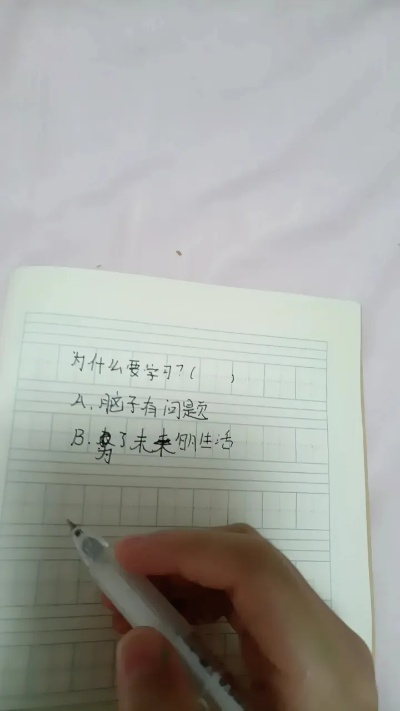 为什么要学习?( )
A.脑子有问题
B.为了未来的生活